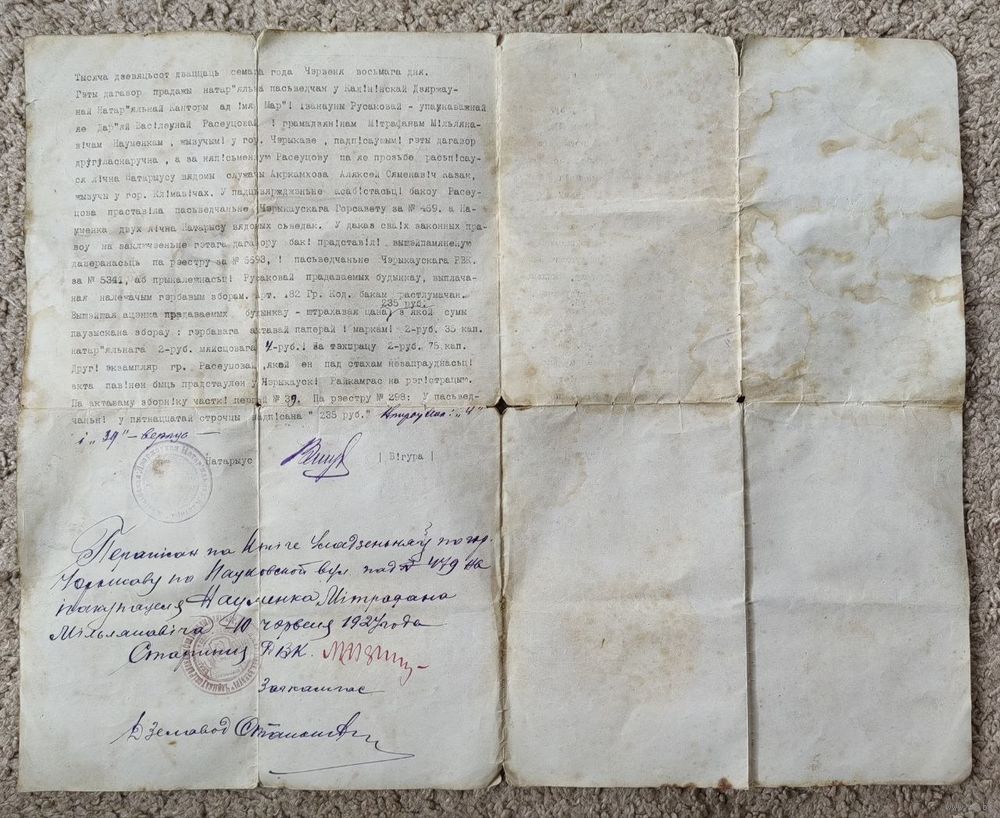 Тысяча дзевяцьсот дваццаць семага года Чэрвеня восьмага дня.
Гэты дагавор продажы натар"яльна пасьведчан у Кал!н!нскай Дзяржау-
най Натар"яльнай Канторы ад !мя Мар"! !ванауны Русаковай - упаунаважнай
яе Дар"яй Вас!леунай Расеуцовай ! грамадзян!нам М!трафанам М!льяна-
в!чам Науменкам , жывучым! у гор. Чэрыкаве , падп!саушым! гэты дагавор
другуласнаручна , а за няп!сьменную Расеуцову па яе прозьбе расьп!сау-
ся л!чна Натарыусу вядомы служачы Акркамхова Аляксей Сяменав!ч Казак,
жывучы у гор. Кл!мав!чах. У падцьвярджджэньне асаб!стасьц! бакоу Расеу-
цова праставіла пасьведчаньне Чэрыкаускага Горсавету за № 469. а На-
уменка двух л!чна Натарыусу вядомых сьведак. У даказ сва!х законных пра-
воу на заключэньне гэтага дагавору бак! прадстав!л! вышэйпамянёную
даверанасьць па рэестру за № 5593, ! пасьведчаньне Чэрыкаускага РВК.
за № 5341, аб прыналежнасьц! Русаковай прадаваемых будынкау, выплача-
ная належачым гербавым зборам. Арт. 182 Гр. Код. бакам растлумачан.
235 руб.
Вышэйшая ацэнка прадаваемых будынкау - штрахавая цана, з якой сумы
паузыскана збораў : гербавага актавай паперай ! маркам! 2-руб. 35 кап.
натар"яльнага 2-руб. мяйсцовага 4-руб.! за тэхпрацу 2-руб. 75.кап.
Друг! экзампляр гр. Расеуцовай ,якой ен пад стахам незапрауднасьц!
акта пав!нен быць прадстаулен у Чэрыкауск! Райкамгас на рэг!страцыю.
Па актаваму зборн!ку часткі першай № 39. Па рэестру № 298: У пасьвед-
чаньн! у пятнаццатай строчцы надп!сана " 235 руб."
і „39" - верпуь -
Натарыус | В!гура |
Перапісан па Кнізе Уладзеньняў по гор.
Чэрыкаву по вул. пад № 479 на
пакупацеля Науменка Мітрафана
Мільянавіча 10 чэрвеня 1927 года
Старшиня РВК.
Загкамгас
Дзелавод